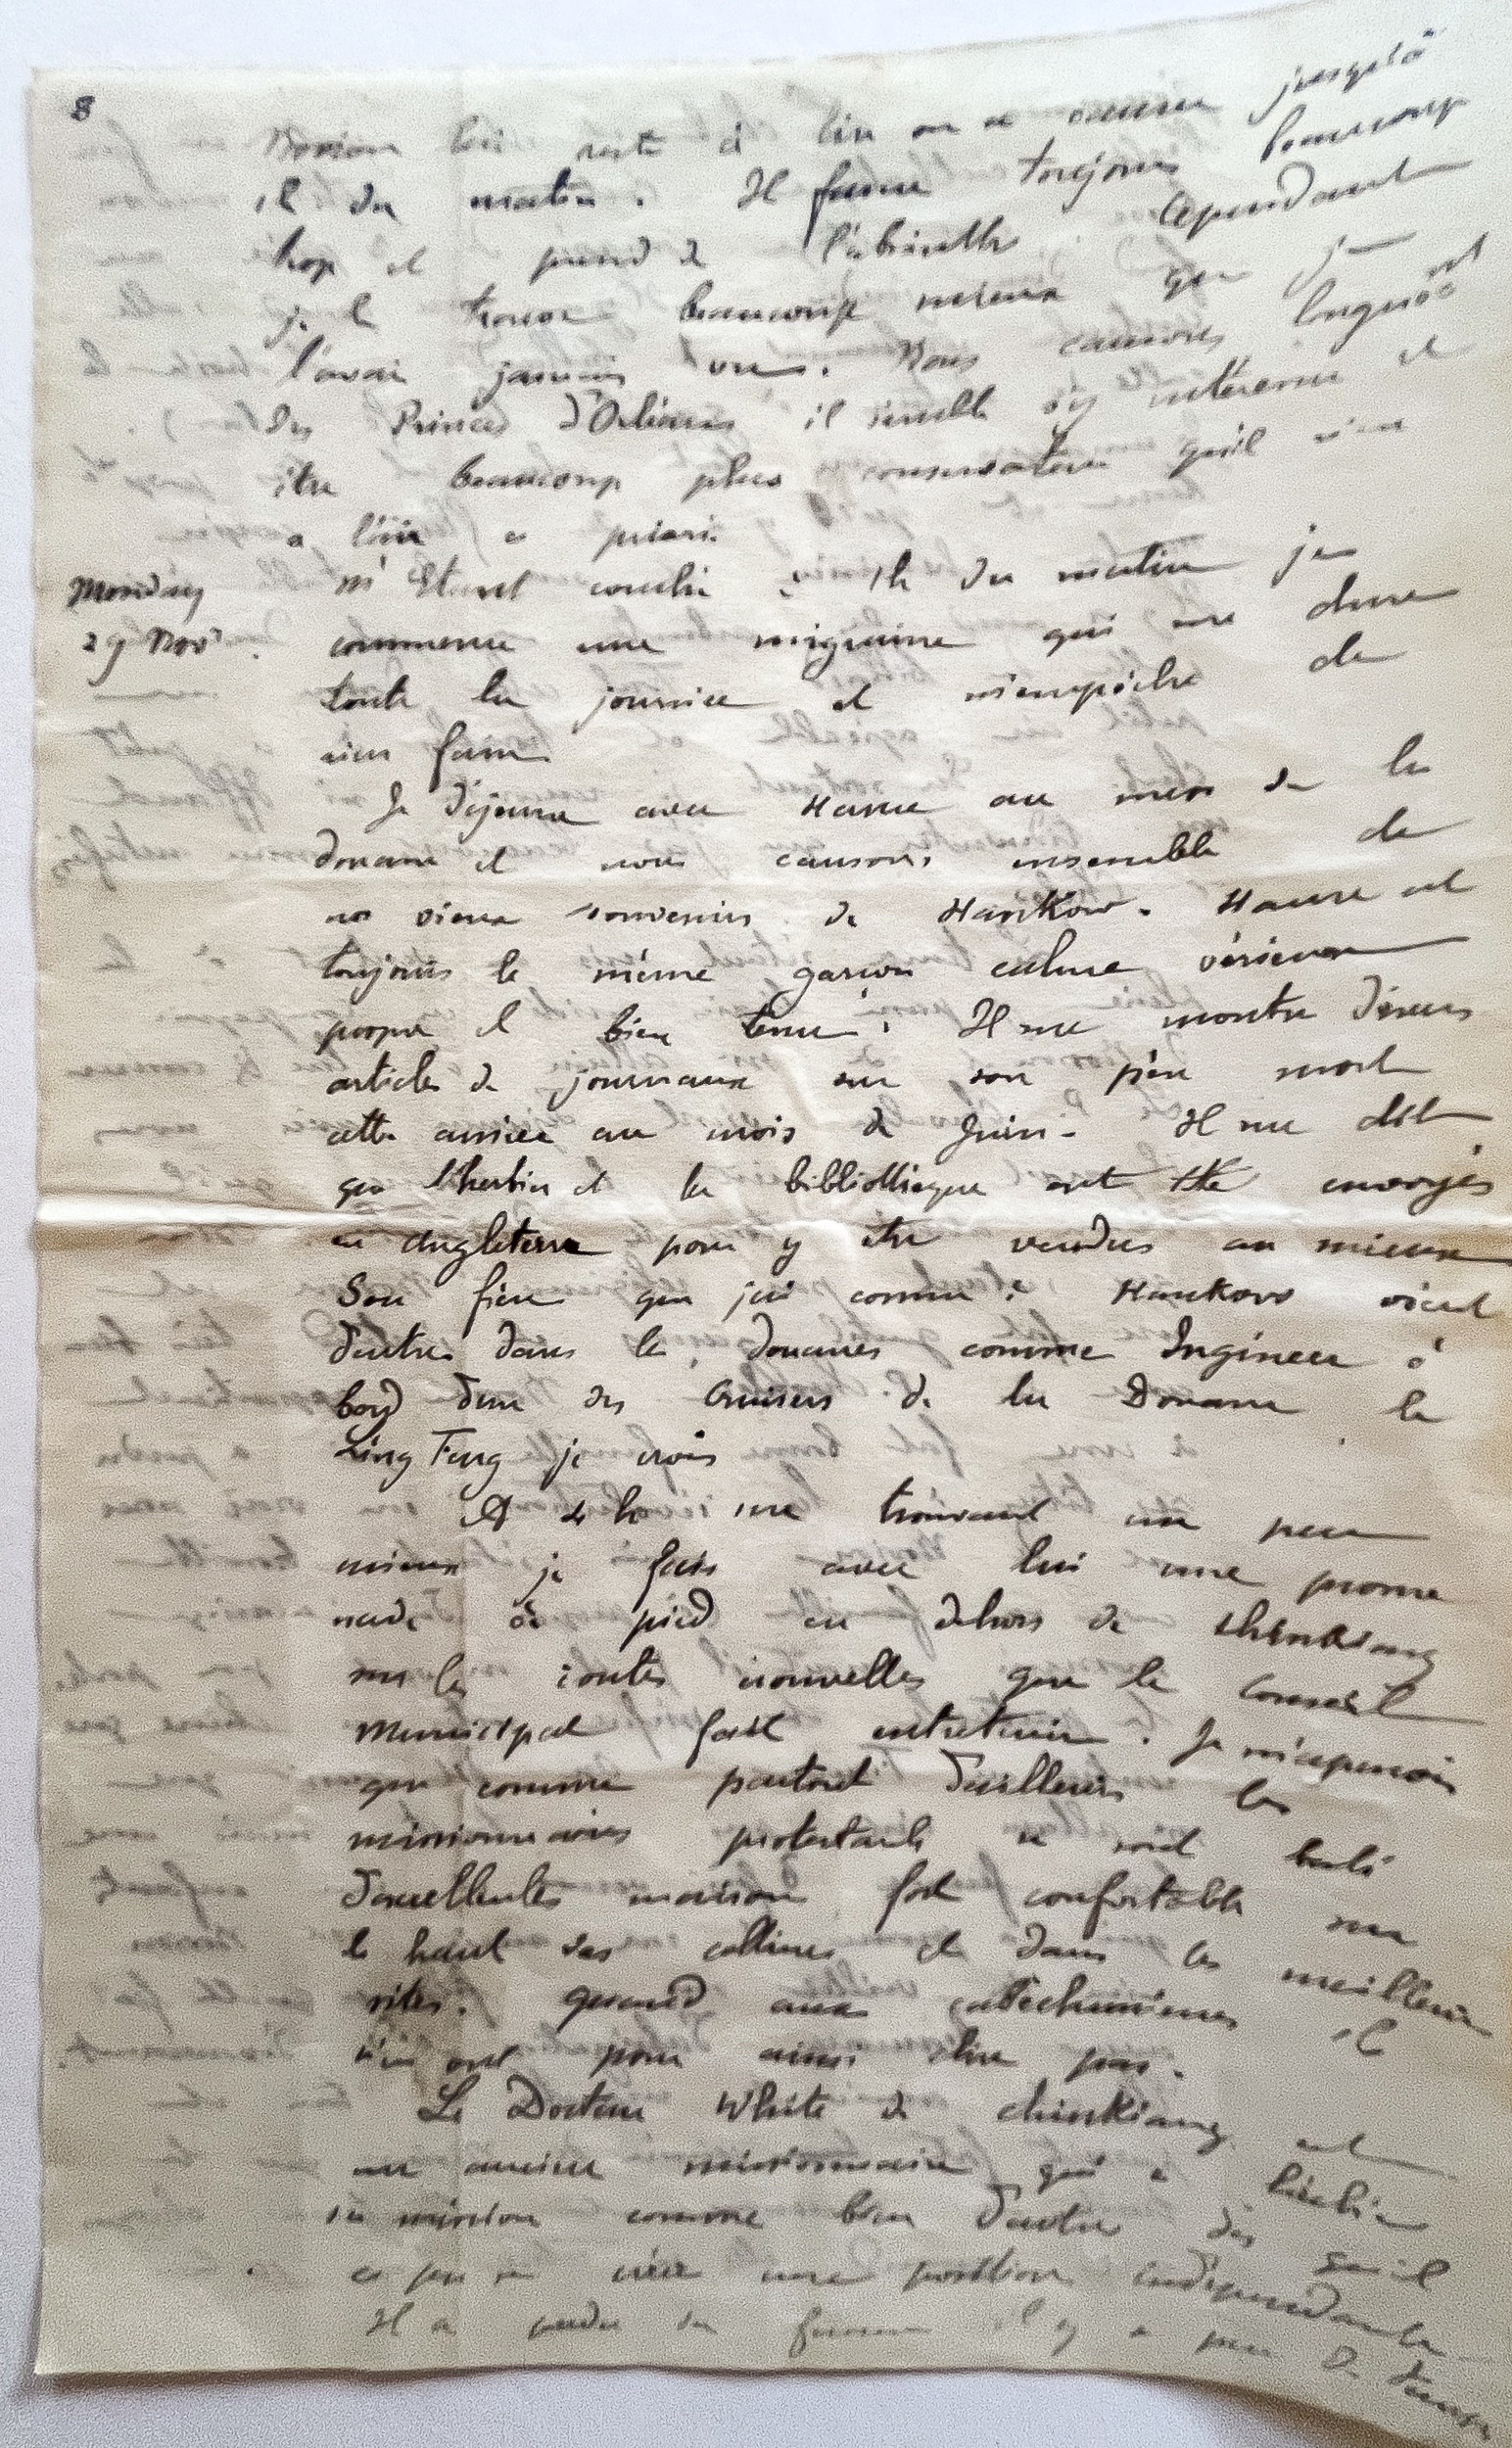 8
Dorian lui reste à lire on a cause jusqu'à
1h du matin. Il fume toujours beaucoup
trop et prend de l'absinthe. Cependant
je le trouve beaucoup mieux que je
l'avai jamais vu. Nous causons longuet
des Princes d'Orléans il semble s'y intéresser et
être beaucoup plus conservateur qu'il n'en
a l'air a priori
Monday
29 Nov
M'étant couché à 1h du matin je
commence une migraine qui me dure
toute la journée et m'empêche de
rien faire
Je déjeune avec Hance au mess de la
douane et nous causons ensemble de
nos vieux souvenirs de Hankow. Hance est
toujours le même garçon calme sérieux
propre et bien tenu. Il me montre divers
articles de journaux sur son père mort
cette année au mois de Juin. Il me dit
que l'herbier et la bibliothèque ont été envoyés
en Angleterre pour y être vendus au mieux
Son frère que j'ai connu à Hankow vient
d'entrer dans les douanes comme Ingénieur à
bord d'un des Cruisers de la Douane le
Ling Feng je crois
A 4h me trouvant un peu
mieux je fais avec lui une prome
nade à pied en dehors de Chinkiang
sur les routes nouvelles que le Conseil
Municipal fait entretenir. Je m'aperçois
que comme partout d'ailleurs les
missionnaires protestants se sont bati
d'excellentes maisons fort confortables sur
le haut des collines et dans les meilleurs
sites. Quand aux catéchumènes il
n'en ont pour ainsi dire pas.
Le Docteur White de Chinkiang est
un ancien missionnaire qui a laché
sa mission comme bien d'autres dès qu'il
a pu se créer une position indépendante
Il a perdu sa femme il y a peu de temps